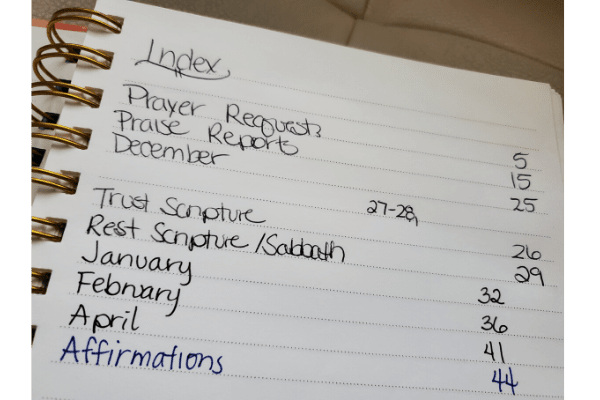 Index
Prayer Requests 5
Praise Reports 15
December 25
Trust Scripture 27-28, 26
Rest Scripture /Sabbath 29
January 32
February 36
April 41
Affirmations 44